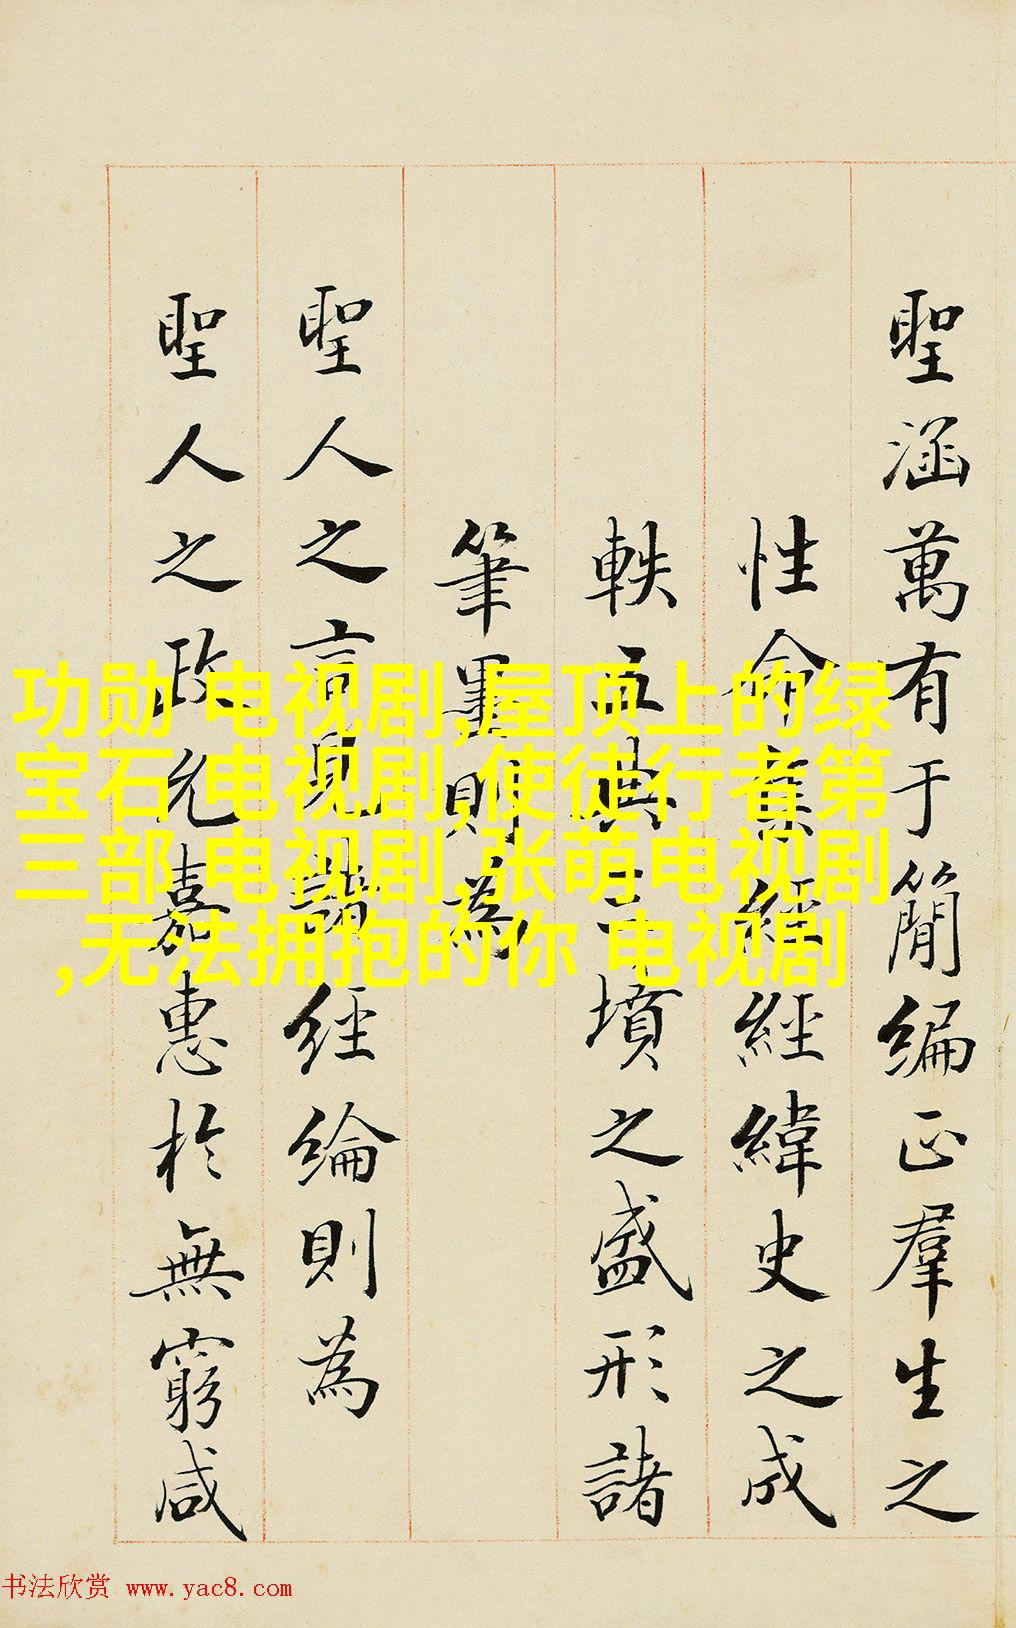 聖涵萬有于簡編正羣生之
性命集經經緯史之成
軼五典三墳之盛形諸
筆墨則為
聖人之言見諸經綸則為
聖人之政允嘉惠於無窮咸
功勋 电视剧,屋顶上的绿
宝石 电视剧,使徒行者第
三部 电视剧,张萌电视剧
,无法拥抱的你 电视剧
书法欣赏 www.yac8.com